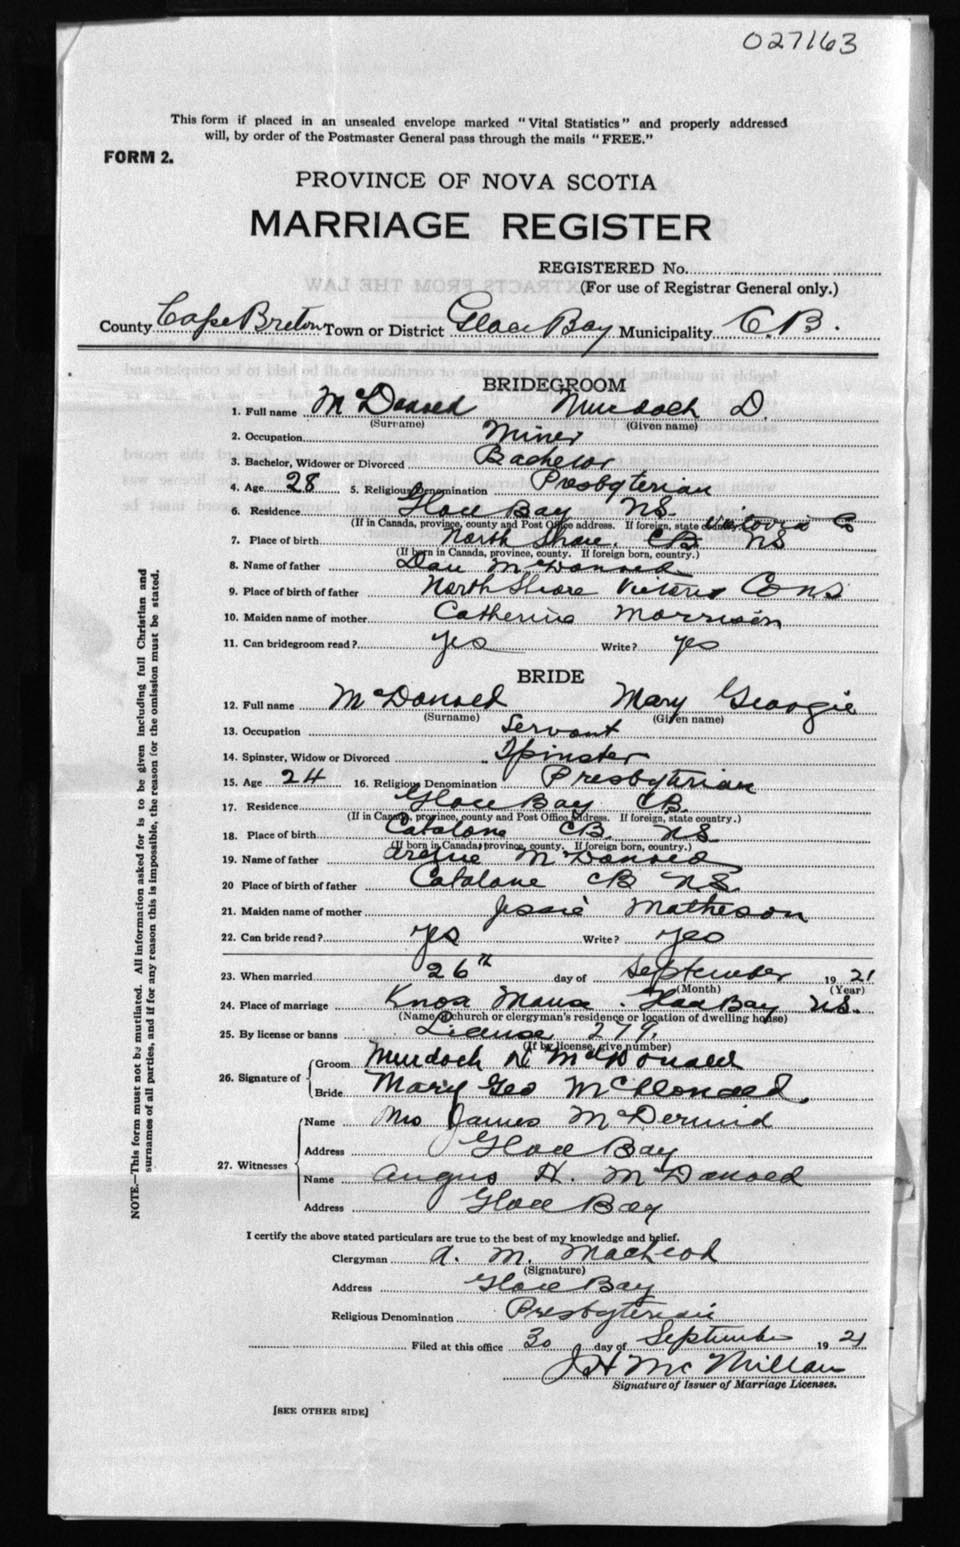 027163
This form if placed in an unsealed envelope marked "Vital Statistics" and properly addressed
will, by order of the Postmaster General pass through the mails "FREE."
FORM 2.
PROVINCE OF NOVA SCOTIA
MARRIAGE REGISTER
REGISTERED No.
(For use of Registrar General only.)
County Cape Breton Town or District Glace Bay Municipality C.B.
BRIDEGROOM
1. Full name McDonald Murdoch D.
(Surname) (Given name)
2. Occupation Miner
3. Bachelor, Widower or Divorced Bachelor
4. Age 28 5. Religious Denomination Presbyterian
6. Residence Glace Bay NS
(If in Canada, province, county and Post Office address. If foreign, state country.) Victoria Co
7. Place of birth North Shore, CB NS
(If born in Canada, province, county. If foreign born, country.)
8. Name of father Dan McDonald
9. Place of birth of father North Shore Victoria Co NS
10. Maiden name of mother Catherine Morrison
11. Can bridegroom read? yes Write? yes
BRIDE
12. Full name McDonald Mary Georgie
(Surname) (Given name)
13. Occupation Servant
14. Spinster, Widow or Divorced Spinster
15. Age 24 16. Religious Denomination Presbyterian
17. Residence Glace Bay CB.
(If in Canada, province, county and Post Office Address. If foreign, state country.)
18. Place of birth Catalone CB. NS
(If born in Canada, province, county. If foreign born, country.)
19. Name of father McDonald
20 Place of birth of father Catalone CB NS.
21. Maiden name of mother Jessie Matheson
22. Can bride read? yes Write? yes
23. When married 26th day of September 1921
(Month) (Year)
24. Place of marriage Knox Manse. Glace Bay NS.
(Name of church or clergyman's residence or location of dwelling house)
25. By license or banns License 279
(If by license, give number)
26. Signature of Groom Murdoch McDonald
Bride Mary Geo McDonald
27. Witnesses Name Mrs James McDermid
Address Glace Bay
Name Angus H. McDonald
Address Glace Bay
I certify the above stated particulars are true to the best of my knowledge and belief.
Clergyman A. M. MacLeod
(Signature)
Address Glace Bay
Religious Denomination Presbyterian
Filed at this office 30 day of September 1921
J H McMillan
Signature of Issuer of Marriage Licenses.
[SEE OTHER SIDE]
NOTE.—This form must not be mutilated. All information asked for is to be given including full Christian and
surnames of all parties, and if for any reason this is impossible, the reason for the omission must be stated.